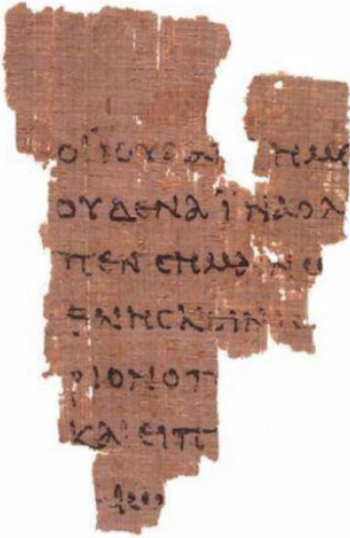 ΟΙΙΟΥΔΑΙ ΗΜΕ
ΟΥΔΕΝΑΪΝΑΟΛ
ΠΕΝϹΗΜΑΙΝΩ
ΘΝΗϹΚΕΙΝ
ΡΙΟΝΟΠ
ΚΑΙΕΙΠ
ΑΙΩ